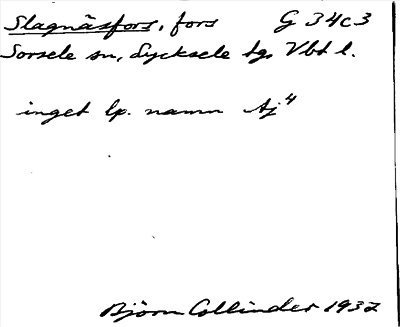 Slagnäsfors, fors G 34c3
Sorsele sn, Lycksele tg. Vbt l.
inget lp. namn Aj⁴
Björn Collinder 1937